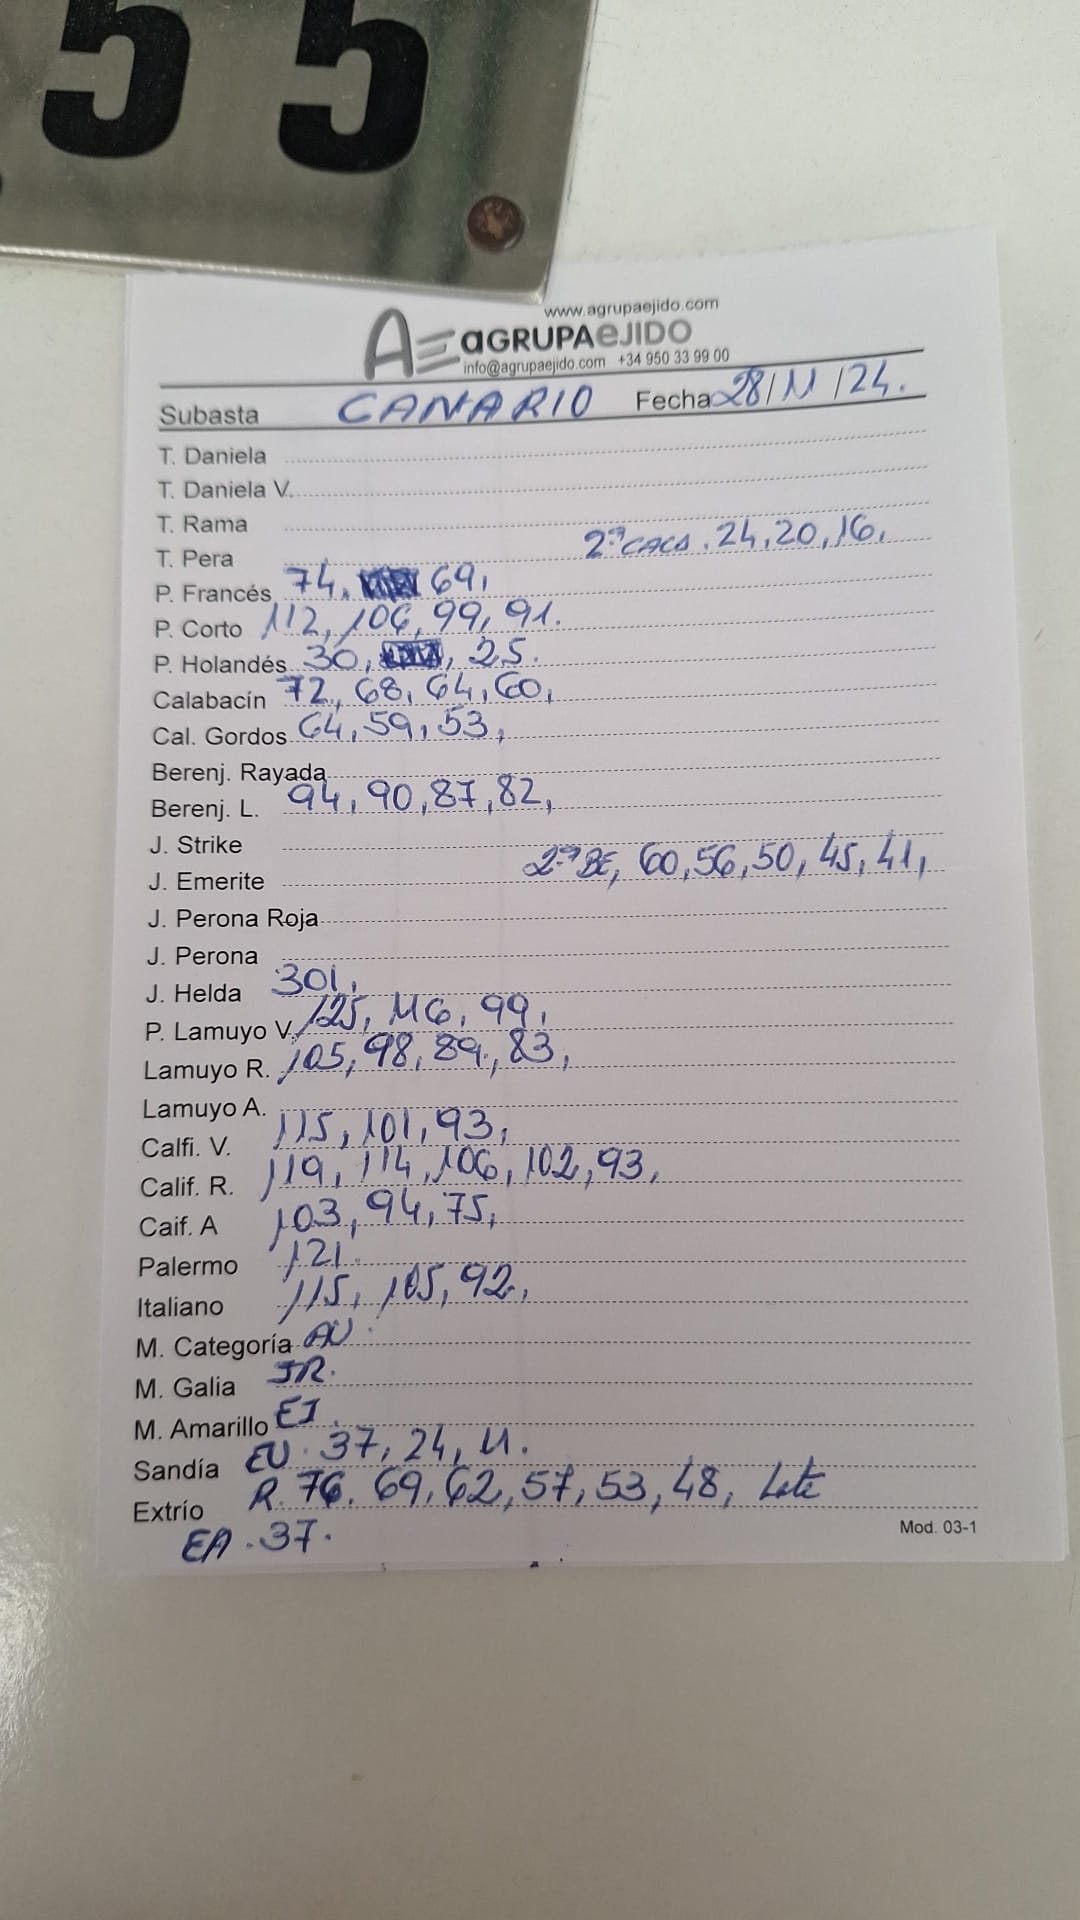 55
www.agrupaejido.com
AE aGRUPAeJIDO
info@agrupaejido.com +34 950 33 99 00
Subasta CANARIO Fecha 28/11/24.
T. Daniela
T. Daniela V.
T. Rama
T. Pera 2ª CACA. 24, 20, 16,
P. Francés 74, 69,
P. Corto 112, 106, 99, 91.
P. Holandés 30, , 25.
Calabacín 72, 68, 64, 60,
Cal. Gordos 64, 59, 53,
Berenj. Rayada
Berenj. L. 94, 90, 87, 82,
J. Strike
J. Emerite 2ª BE, 60, 56, 50, 45, 41,
J. Perona Roja
J. Perona
J. Helda 301,
P. Lamuyo V. 125, 116, 99,
Lamuyo R. 105, 98, 89, 83,
Lamuyo A.
Calfi. V. 115, 101, 93,
Calif. R. 119, 114, 106, 102, 93,
Caif. A 103, 94, 75,
Palermo 121.
Italiano 115, 105, 92,
M. Categoría AU.
M. Galia JR.
M. Amarillo EJ.
Sandía EU. 37, 24, 11.
Extrío R. 76, 69, 62, 57, 53, 48, Lote
EA. 37.
Mod. 03-1